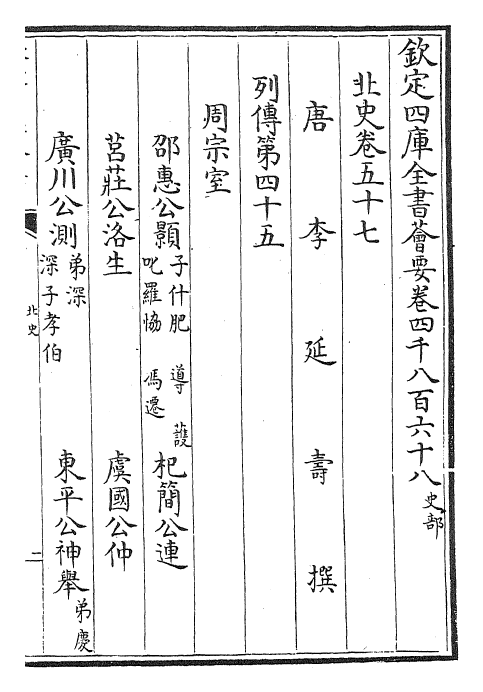 欽定四庫全書薈要卷四千八百六十八 史部
北史卷五十七
唐 李 延 壽 撰
列傳第四十五
周宗室
邵惠公顥 子什肥 導 䕶 叱羅恊 馮遷 杞簡公連
莒莊公洛生 虞國公仲
廣川公測 弟深 深子孝伯 東平公神舉 弟慶
北史 二